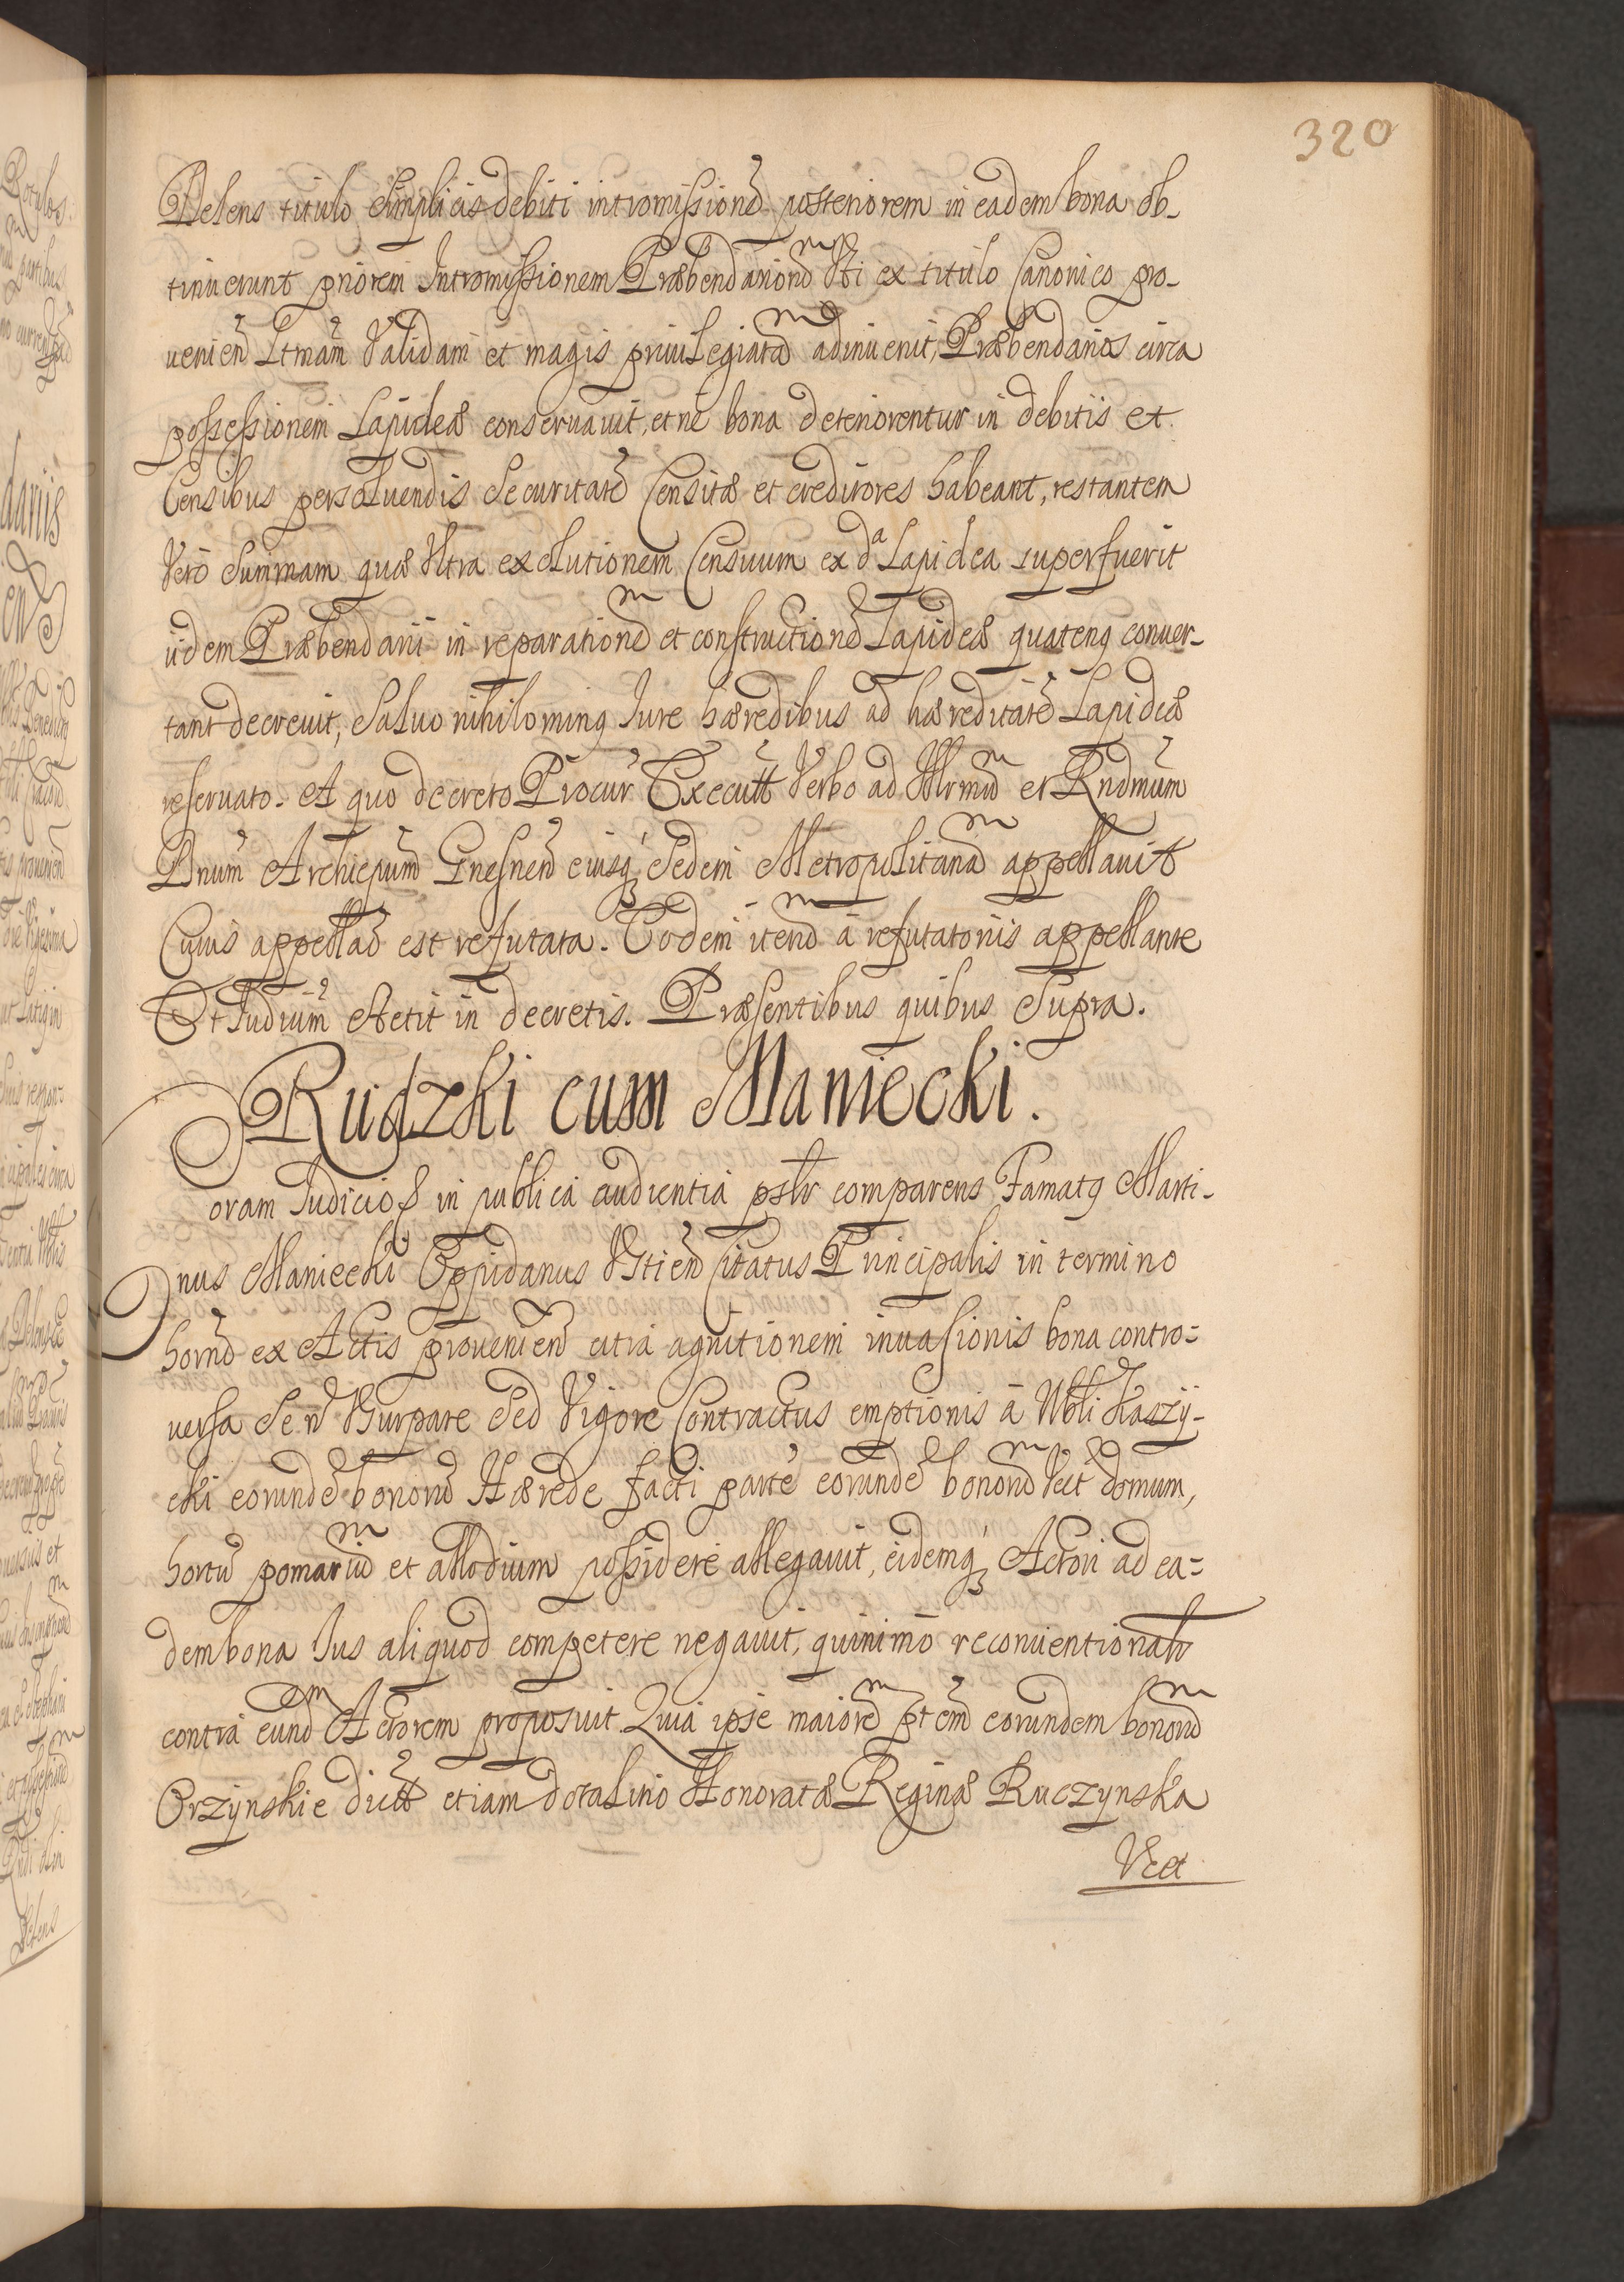 320
Delens titulo simplicis debiti intromissionem posteriorem in eadem bona ob-
tinuerunt priorem Intromissionem Præbendariorum Vti ex titulo Canonico pro-
uenien Ltmam Validam et magis priuilegiatam adinuenit, Præbendarios circa
possessionem Lapideæ conseruauit, et ne bona deteriorentur in debitis et
Censibus persoluendis Securitatem Censitæ et creditores habeant, restantem
Vero Summam quæ Vltra exolutionem Censuum ex da Lapidea superfuerit
iidem Præbendarii in reparationem et constructionem Lapideæ quatenq conuer-
tant decreuit, Saluo nihilominq Iure hæredibus ad hæreditatem Lapideæ
reseruato. A quo decreto Procur Executt Verbo ad Illrmum et Rndmum
Dnum Archiepum Gnesnen eiusq Sedem Metropolitanam appellauit
Cuius appellao est refutata. Eodem iterum à refutatoriis appellante
Et Iudium stetit in decretis. Præsentibus quibus Supra.
Rudzki cum Maniecki.
Coram Iudicio in publica audientia pslr comparens Famatq Marti-
nus Maniecki Oppidanus Vstien Citatus Principalis in termino
horno ex Actis prouenien citra agnitionem inuasionis bona contro-
uersa Se n Vsurpare Sed Vigore Contractus emptionis à Nbli Kaszy-
cki eorundem bonorum Hærede facti partem eorundem bonorum Vctt domum,
hortum pomarium et allodium possidere allegauit, eidemq Actori ad ea-
dem bona Ius aliquod competere negauit, quinimo reconuentionalr
contra eundem Actorem proposuit. Quia ipse maiorem ptem eorundem bonorum
Orzynskie dictt etiam dotalitio Honoratæ Reginæ Ruczynska
Vctt